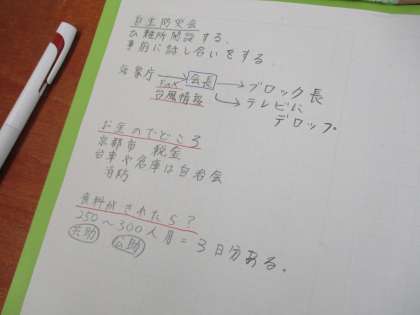 自主防災会
公難所開設する、
事前に話し合いをする
気象庁 → 会長 → ブロック長
FAX
台風情報 → テレビに
テロップ
お金のでどころ
京都市 税金
台車や倉庫は自治会
消防
食料がきれたら?
250〜300人月=3日分ある。
共助 公助